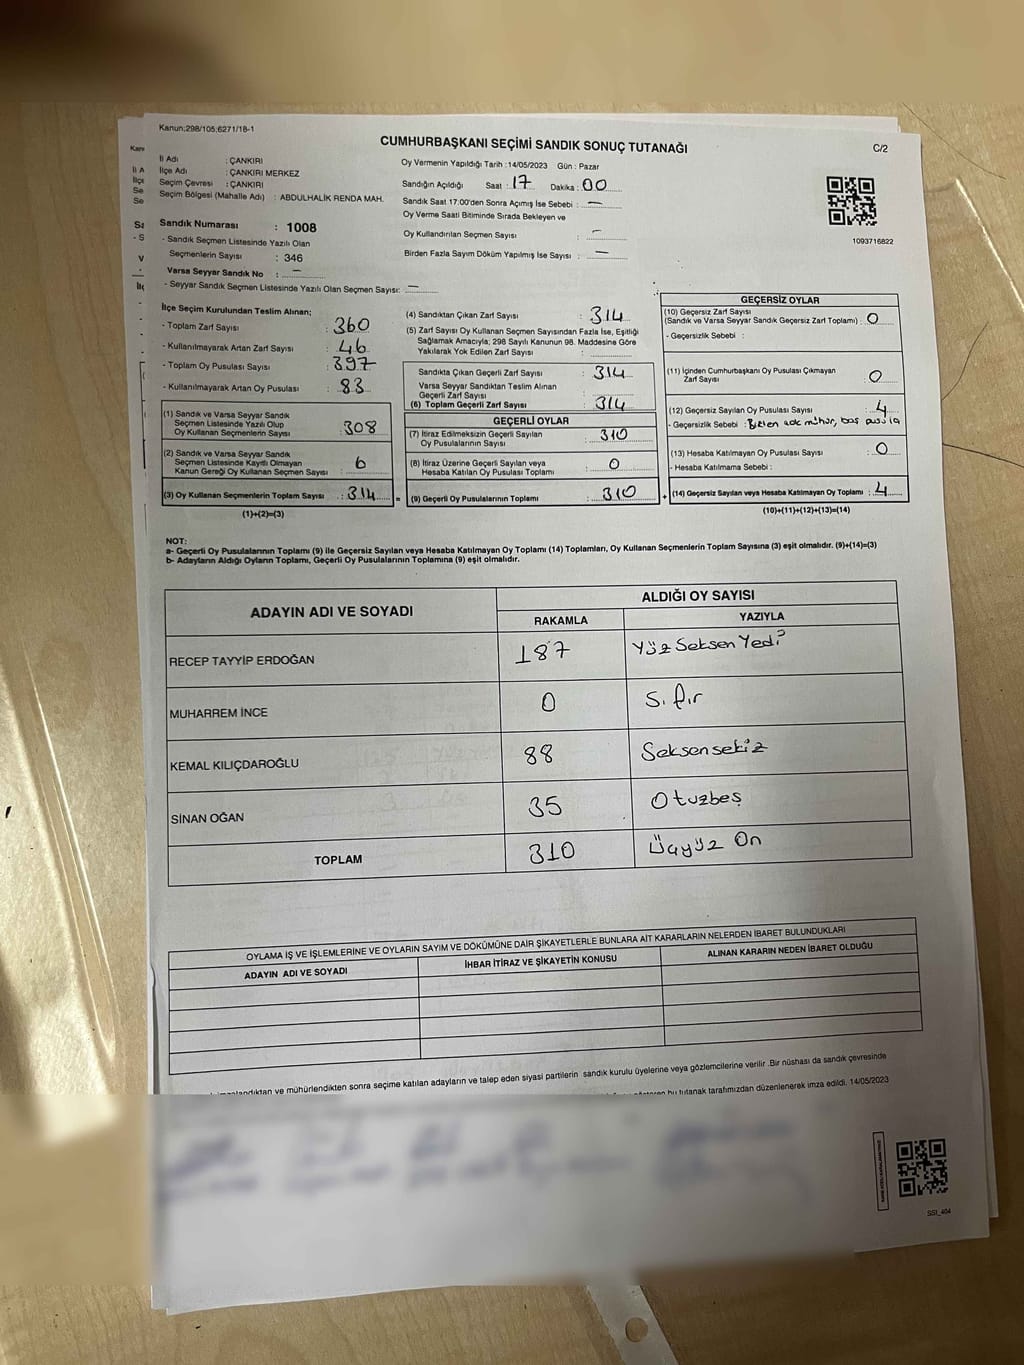 Kanun;298/105;6271/18-1
CUMHURBAŞKANI SEÇİMİ SANDIK SONUÇ TUTANAĞI
C/2
İl Adı : ÇANKIRI
İlçe Adı : ÇANKIRI MERKEZ
Seçim Çevresi : ÇANKIRI
Seçim Bölgesi (Mahalle Adı) : ABDULHALİK RENDA MAH.
Sandık Numarası : 1008
- Sandık Seçmen Listesinde Yazılı Olan
Seçmenlerin Sayısı : 346
Varsa Seyyar Sandık No : –
- Seyyar Sandık Seçmen Listesinde Yazılı Olan Seçmen Sayısı: –
Oy Vermenin Yapıldığı Tarih : 14/05/2023 Gün : Pazar
Sandığın Açıldığı Saat : 17 Dakika : 00
Sandık Saat 17:00'den Sonra Açımış İse Sebebi : –
Oy Verme Saati Bitiminde Sırada Bekleyen ve
Oy Kullandırılan Seçmen Sayısı : –
Birden Fazla Sayım Döküm Yapılmış İse Sayısı : –
1093716822
İlçe Seçim Kurulundan Teslim Alınan;
- Toplam Zarf Sayısı : 360
- Kullanılmayarak Artan Zarf Sayısı : 46
- Toplam Oy Pusulası Sayısı : 397
- Kullanılmayarak Artan Oy Pusulası : 83
(1) Sandık ve Varsa Seyyar Sandık
Seçmen Listesinde Yazılı Olup
Oy Kullanan Seçmenlerin Sayısı : 308
(2) Sandık ve Varsa Seyyar Sandık
Seçmen Listesinde Kayıtlı Olmayan
Kanun Gereği Oy Kullanan Seçmen Sayısı : 6
(3) Oy Kullanan Seçmenlerin Toplam Sayısı : 314 =
(1)+(2)=(3)
(4) Sandıktan Çıkan Zarf Sayısı : 314
(5) Zarf Sayısı Oy Kullanan Seçmen Sayısından Fazla İse, Eşitliği
Sağlamak Amacıyla; 298 Sayılı Kanunun 98. Maddesine Göre
Yakılarak Yok Edilen Zarf Sayısı :
Sandıkta Çıkan Geçerli Zarf Sayısı : 314
Varsa Seyyar Sandıktan Teslim Alınan
Geçerli Zarf Sayısı :
(6) Toplam Geçerli Zarf Sayısı : 314
GEÇERLİ OYLAR
(7) İtiraz Edilmeksizin Geçerli Sayılan
Oy Pusulalarının Sayısı : 310
(8) İtiraz Üzerine Geçerli Sayılan veya
Hesaba Katılan Oy Pusulası Toplamı : 0
(9) Geçerli Oy Pusulalarının Toplamı : 310 +
GEÇERSİZ OYLAR
(10) Geçersiz Zarf Sayısı
(Sandık ve Varsa Seyyar Sandık Geçersiz Zarf Toplamı) : 0
- Geçersizlik Sebebi :
(11) İçinden Cumhurbaşkanı Oy Pusulası Çıkmayan
Zarf Sayısı : 0
(12) Geçersiz Sayılan Oy Pusulası Sayısı : 4
- Geçersizlik Sebebi : mühür, boş pusula
(13) Hesaba Katılmayan Oy Pusulası Sayısı : 0
- Hesaba Katılmama Sebebi :
(14) Geçersiz Sayılan veya Hesaba Katılmayan Oy Toplamı : 4
(10)+(11)+(12)+(13)=(14)
NOT:
a- Geçerli Oy Pusulalarının Toplamı (9) ile Geçersiz Sayılan veya Hesaba Katılmayan Oy Toplamı (14) Toplamları, Oy Kullanan Seçmenlerin Toplam Sayısına (3) eşit olmalıdır. (9)+(14)=(3)
b- Adayların Aldığı Oyların Toplamı, Geçerli Oy Pusulalarının Toplamına (9) eşit olmalıdır.
ADAYIN ADI VE SOYADI
ALDIĞI OY SAYISI
RAKAMLA YAZIYLA
RECEP TAYYİP ERDOĞAN 187 Yüz Seksen Yedi
MUHARREM İNCE 0 Sıfır
KEMAL KILIÇDAROĞLU 88 Seksensekiz
SİNAN OĞAN 35 Otuzbeş
TOPLAM 310 Üçyüz On
OYLAMA İŞ VE İŞLEMLERİNE VE OYLARIN SAYIM VE DÖKÜMÜNE DAİR ŞİKAYETLERLE BUNLARA AİT KARARLARIN NELERDEN İBARET BULUNDUKLARI
ADAYIN ADI VE SOYADI İHBAR İTİRAZ VE ŞİKAYETİN KONUSU ALINAN KARARIN NEDEN İBARET OLDUĞU
ve mühürlendikten sonra seçime katılan adayların ve talep eden siyasi partilerin sandık kurulu üyelerine veya gözlemcilerine verilir .Bir nüshası da sandık çevresinde
bu tutanak tarafımızdan düzenlenerek imza edildi. 14/05/2023
SS1_404